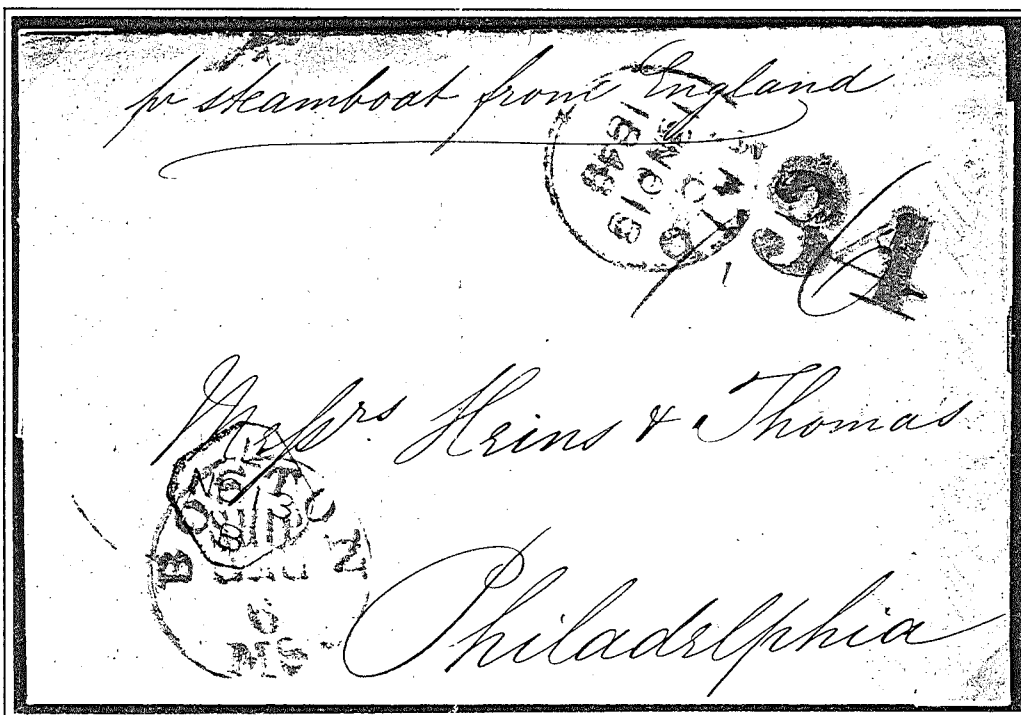 pr steamboat from England
1848
34
Messrs Heins & Thomas
BOSTON
SHIP
6
MS
Philadelphia